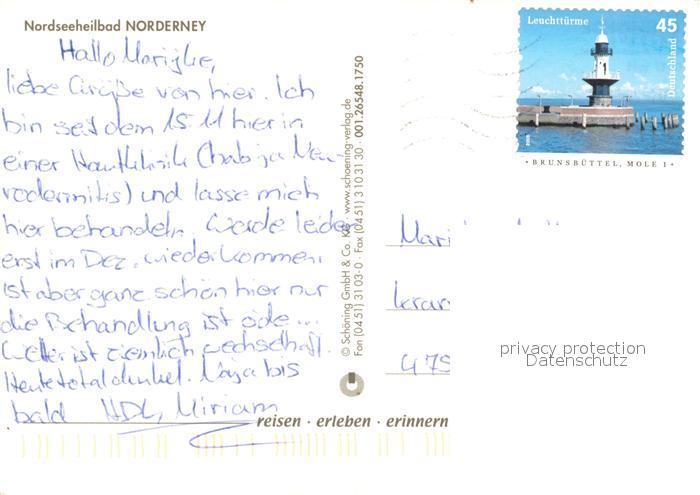 Nordseeheilbad NORDERNEY
Hallo Marijke,
liebe Grüße von hier. Ich
bin seit dem 15.11 hier in
einer Hautklinik (hab ja Neu-
rodermitis) und lasse mich
hier behandeln. Werde leider
erst im Dez. wiederkommen.
Ist aber ganz schön hier nur
die Behandlung ist öde...
Wetter ist ziemlich wechselhaft.
Heute total dunkel. Naja bis
bald HDL, Miriam
reisen · erleben · erinnern
© Schöning GmbH & Co. KG · www.schoening-verlag.de
Fon (04 51) 31 03-0 · Fax (04 51) 3 10 31 30 · 001.26548.1750
Leuchttürme 45
Deutschland
· BRUNSBÜTTEL, MOLE 1 ·
Mari
kran
475
privacy protection
Datenschutz